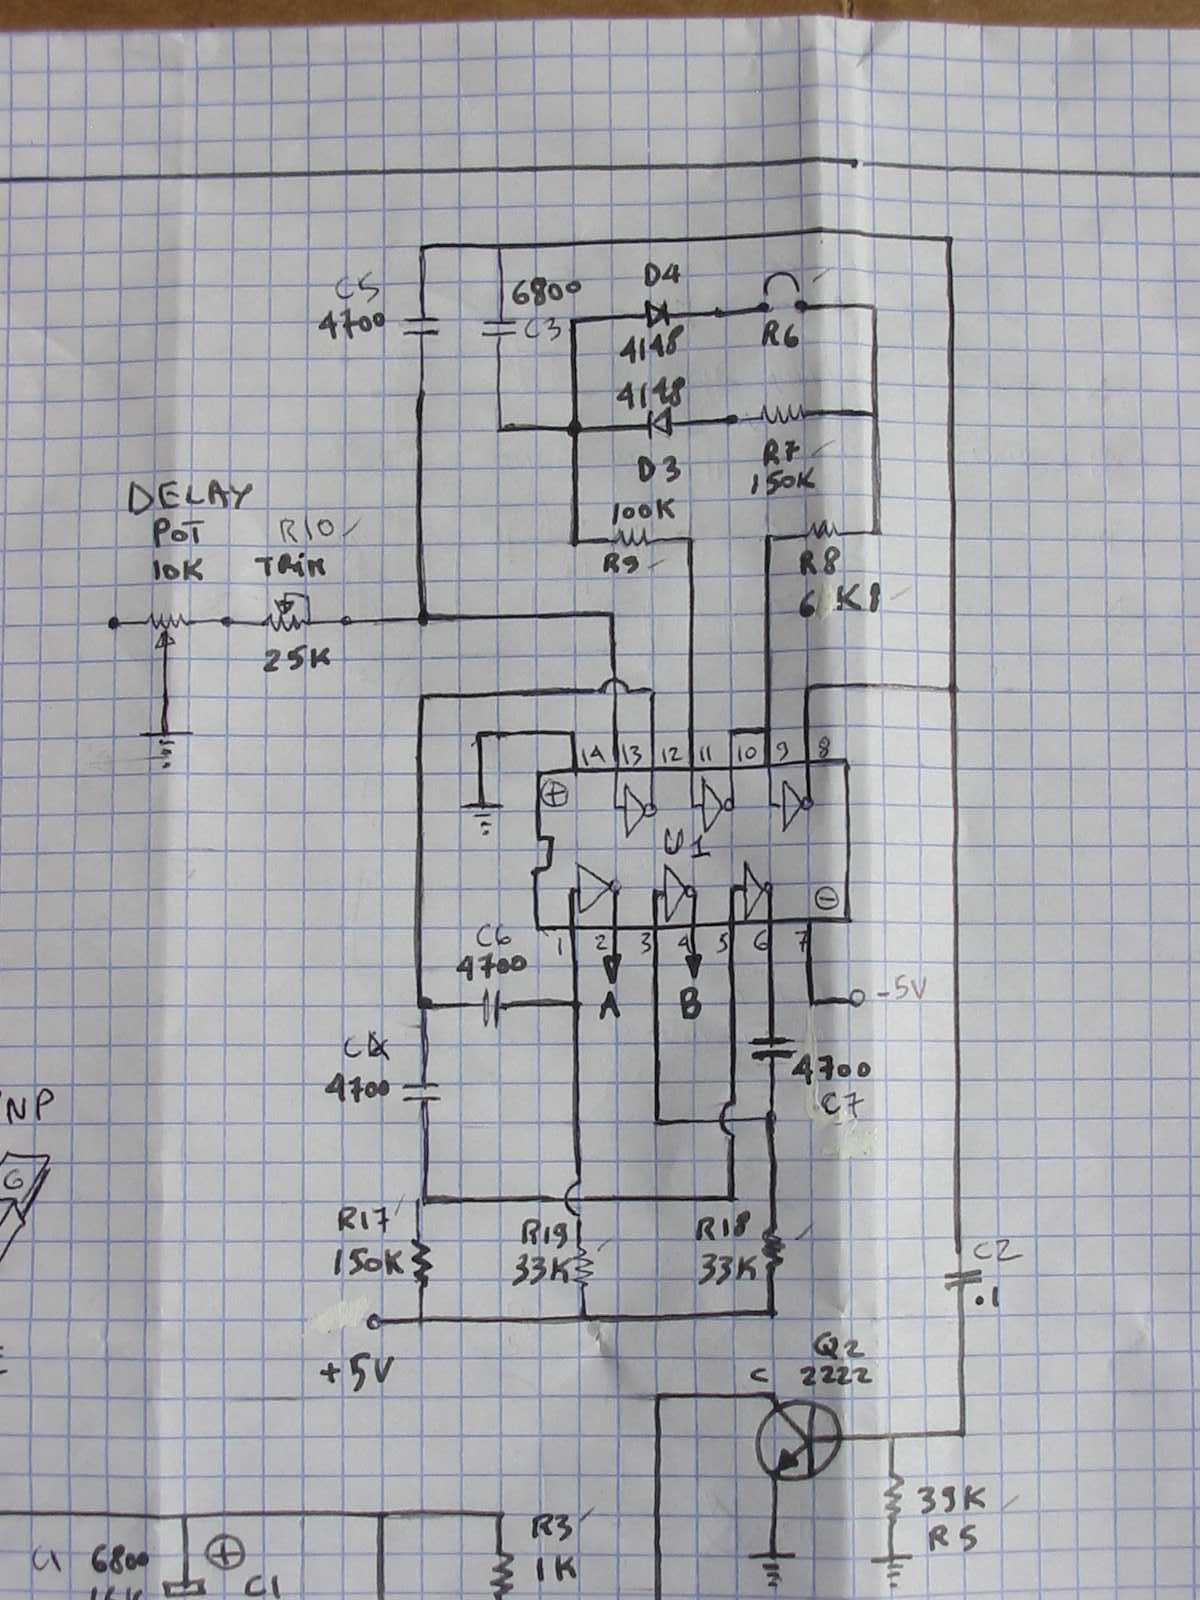 C5
4700
6800
C3
D4
4148
R6
4148
D3
R7
150K
100K
R9
R8
6 K8
DELAY
POT
10K
R10
TRIM
25K
14 13 12 11 10 9 8
+
U1
-
1 2 3 4 5 6 7
A B
-5V
C6
4700
C4
4700
4700
C7
PNP
G
R17
150K
R19
33K
R18
33K
C2
.1
+5V
Q2
2222
C
39K
R5
R3
1K
C1 6800
+
C1